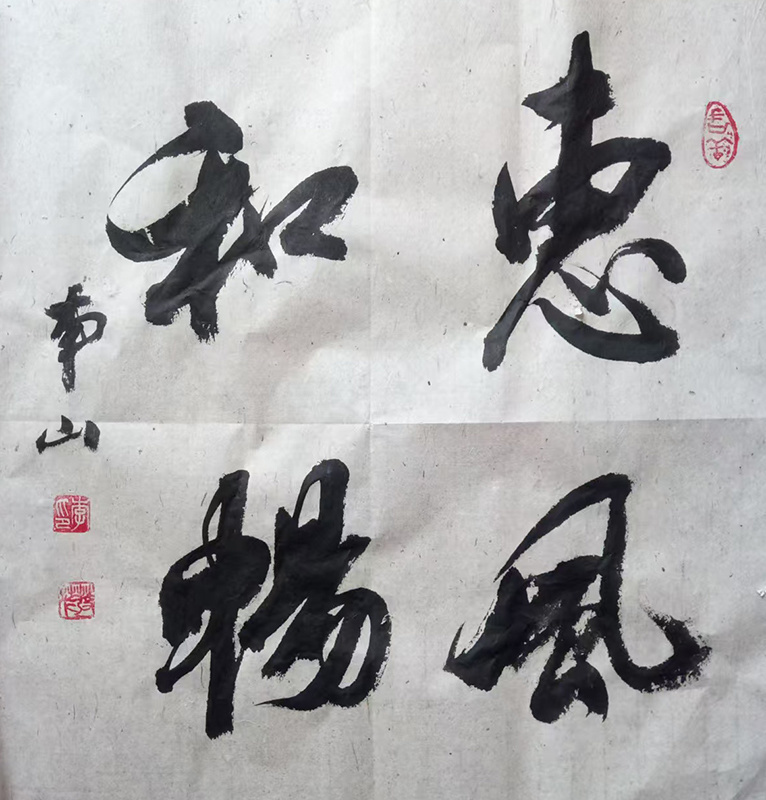 惠风
和畅
南山